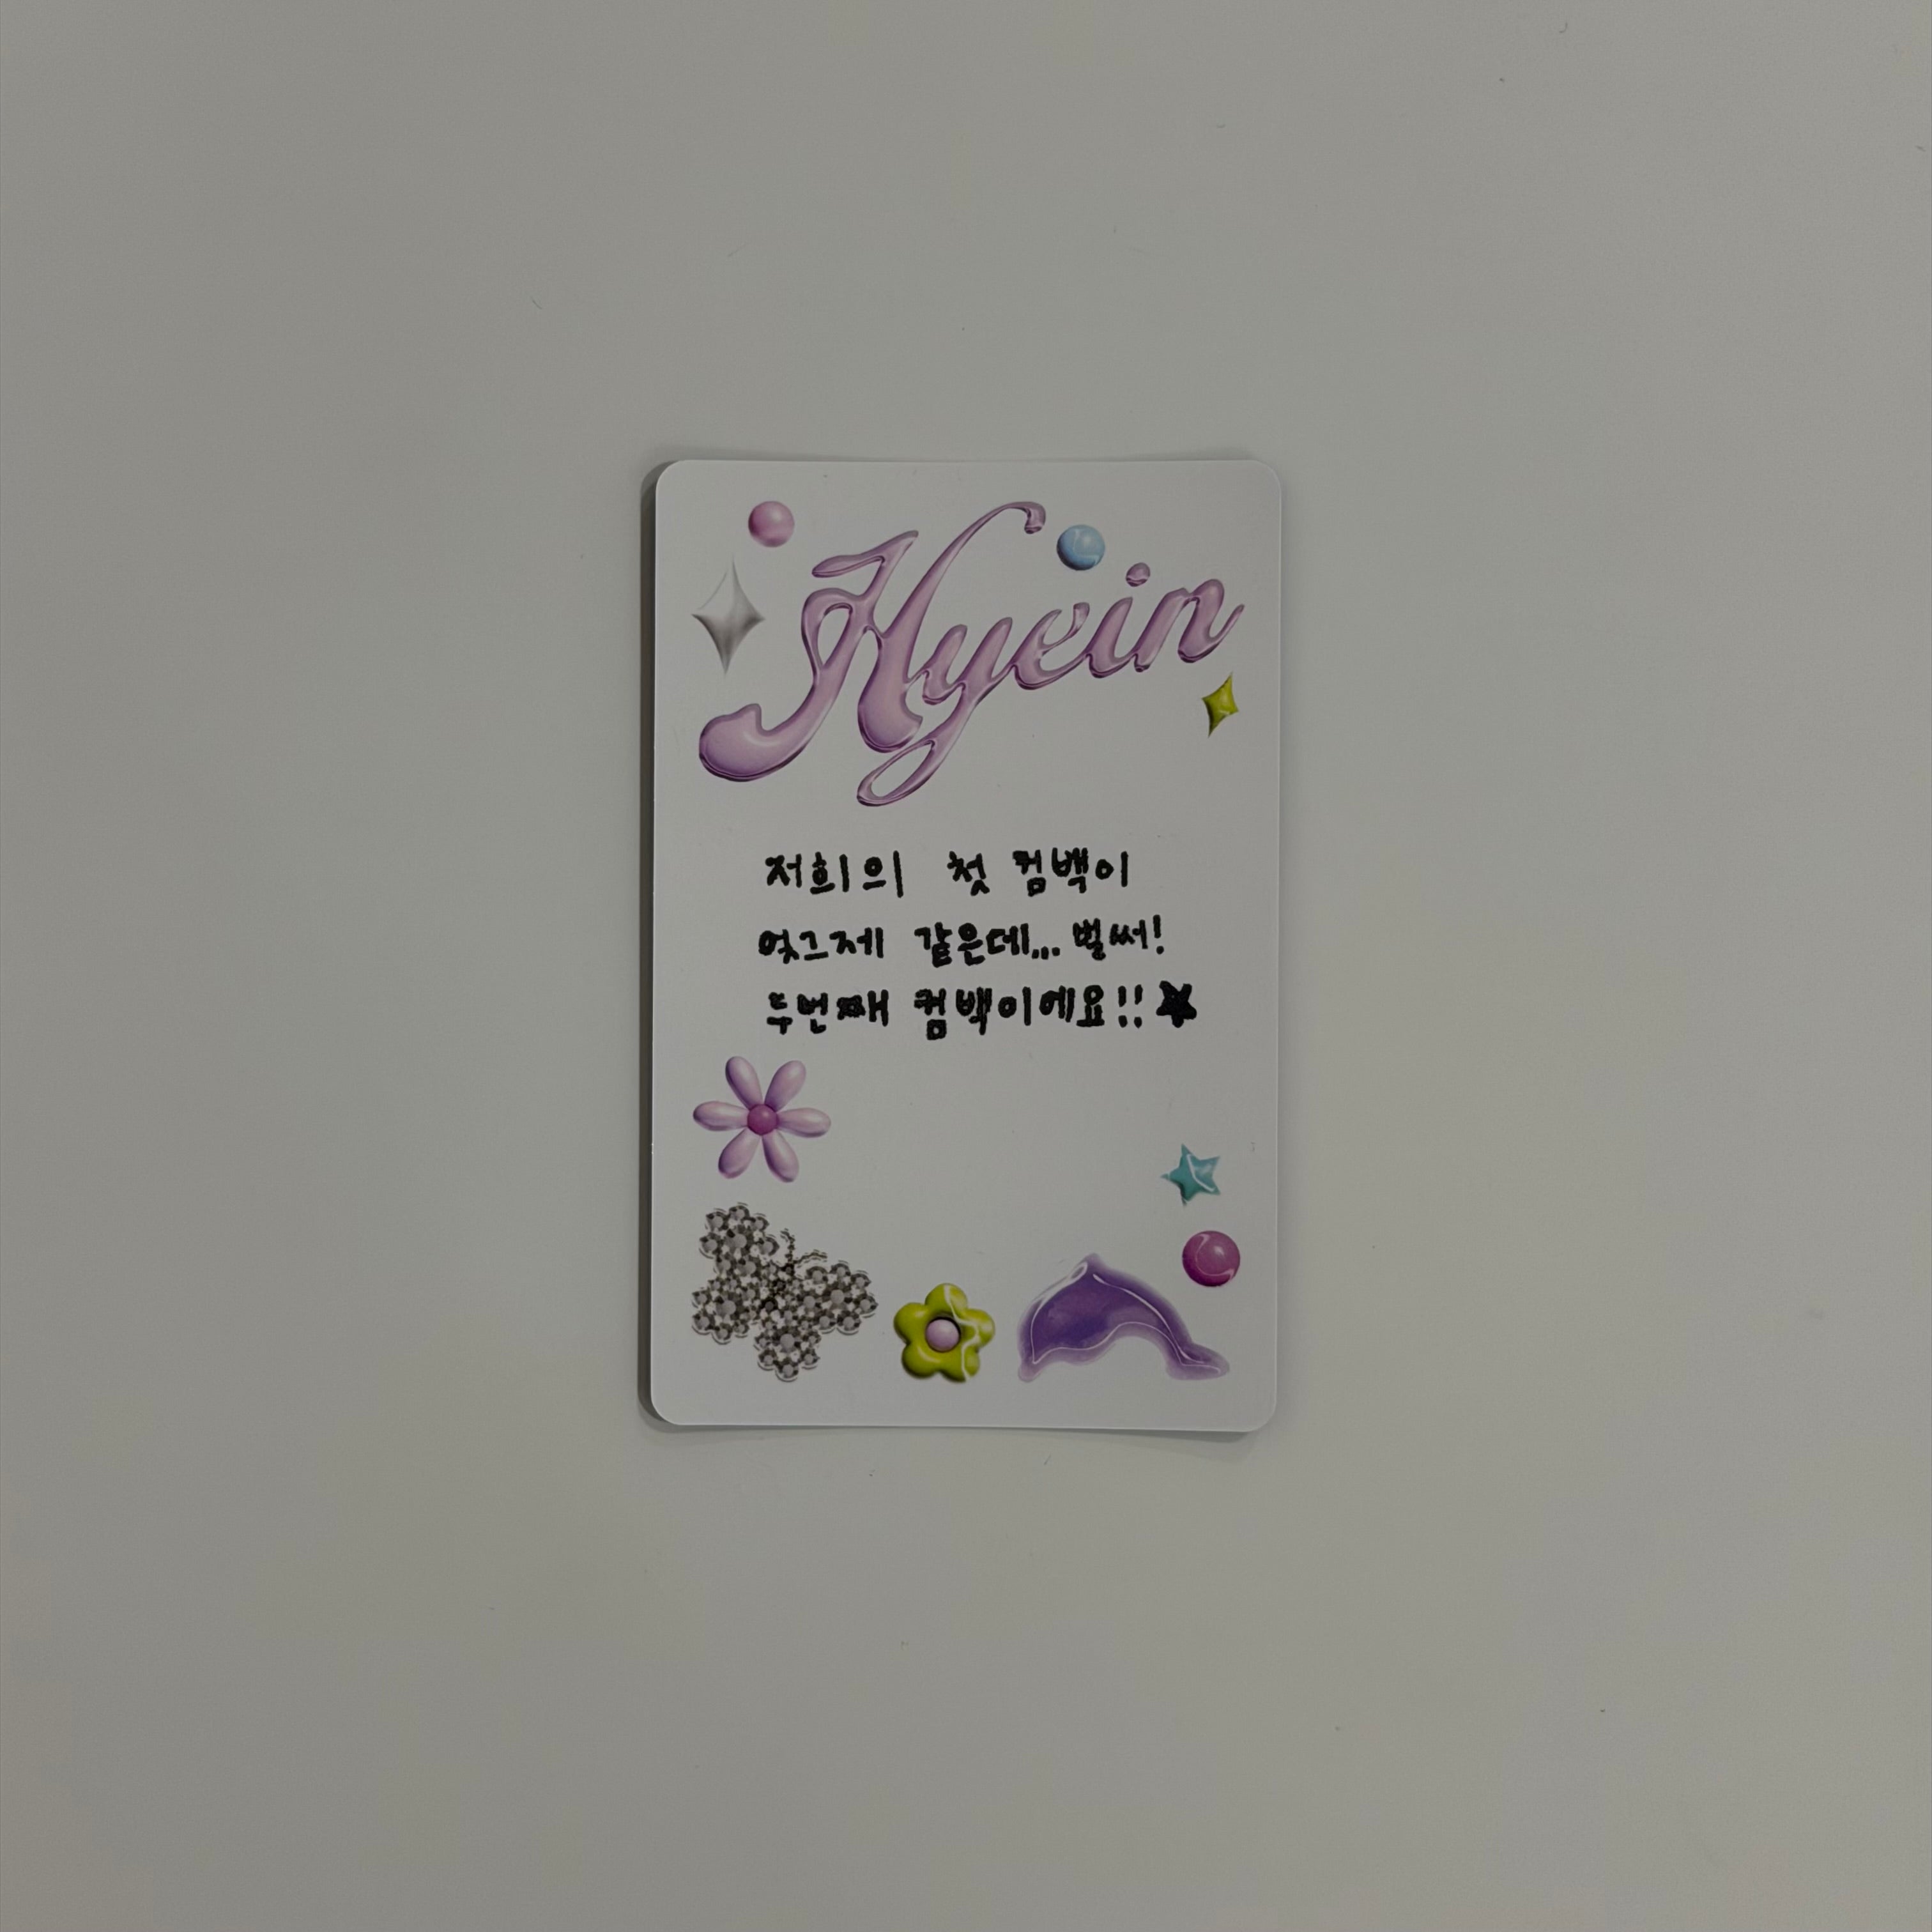 Hyein
저희의 첫 컴백이
엊그제 같은데... 벌써!
두번째 컴백이에요!!★